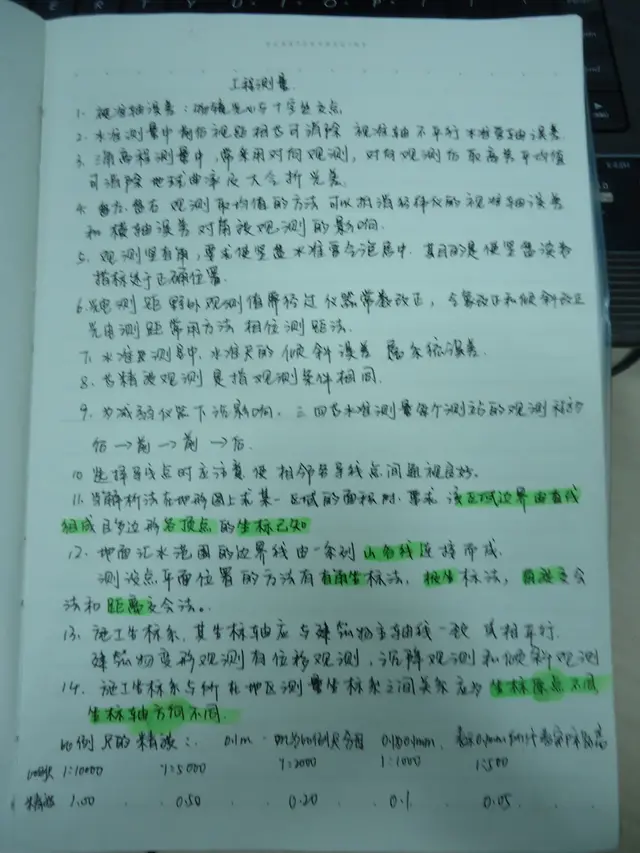 工程测量
1. 视准轴误差：物镜光心与十字丝交点
2. 水准测量中前后视距相等可消除 视准轴不平行水准管轴误差
3. 三角高程测量中，常采用对向观测，对向观测后取高差平均值
可消除地球曲率及大气折光差.
4. 盘左.盘右观测取均值的方法可以抵消经纬仪的视准轴误差
和横轴误差对角度观测的影响.
5. 观测竖直角，要求使竖盘水准管气泡居中，其目的是使竖盘读数
指标处于正确位置.
6. 光电测距野外观测值需经过仪器常数改正，气象改正和倾斜改正
光电测距常用方法 相位测距法.
7. 水准尺测量中，水准尺的倾斜误差 属系统误差.
8. 等精度观测是指观测条件相同.
9. 为减弱仪器下沉影响，三四等水准测量每个测站的观测程序
后→前→前→后.
10 选择导线点时应注意使相邻各导线点间通视良好.
11. 当解析法在地形图上求某一区域的面积时，要求 该区域边界由直线
组成且多边形各顶点的坐标已知
12. 地面汇水范围的边界线由一系列山脊线连接而成.
测设点平面位置的方法有直角坐标法，极坐标法，前方交会
法和距离交会法。.
13. 施工坐标系，其坐标轴应与建筑物主轴线一致或相平行.
建筑物变形观测有位移观测，沉降观测和倾斜观测
14. 施工坐标系与所在地区测量坐标系之间关系应为坐标原点不同
坐标轴方向不同.
比例尺的精度：. 0.1m
比例尺 1:10000 1:5000 1:2000 1:1000 1:500
精度 1.00 0.50 0.20 0.1 0.05